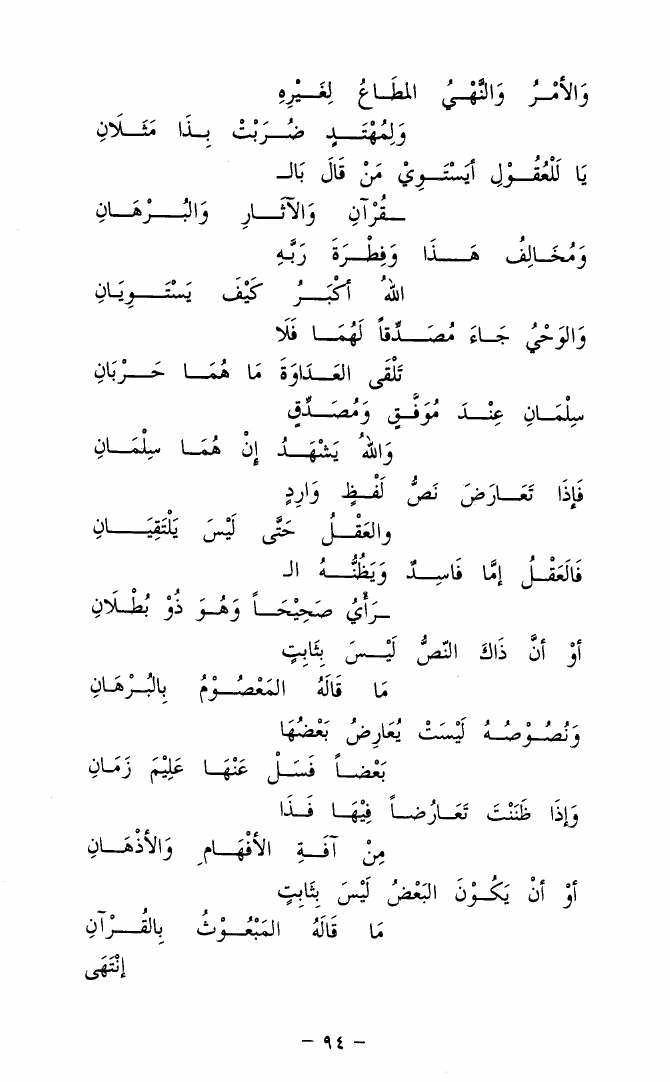 وَالأَمْرُ وَالنَّهْيُ المُطَاعُ لِغَيْرِهِ
وَلِمُهْتَدٍ ضُرِبَتْ بِذَا مَثَلَانِ
يَا لَلْعُقُولِ أَيَسْتَوِي مَنْ قَالَ بَالـ
ـقُرْآنِ وَالآثَارِ وَالبُرْهَانِ
وَمُخَالِفُ هَذَا وَفِطْرَةَ رَبَّهِ
اللهُ أَكْبَرُ كَيْفَ يَسْتَوِيَانِ
وَالوَحْيُ جَاءَ مُصَدِّقاً لَهُمَا فَلَا
تَلْقَى العَدَاوَةَ مَا هُمَا حَرْبَانِ
سِلْمَانِ عِنْدَ مُوَفَّقٍ وَمُصَدِّقٍ
وَاللهُ يَشْهَدُ إِنْ هُمَا سِلْمَانِ
فَإِذَا تَعَارَضَ نَصُّ لَفْظٍ وَارِدٍ
والعَقْلُ حَتَّى لَيْسَ يَلْتَقِيَانِ
فَالعَقْلُ إِمَّا فَاسِدٌ وَيَظُنُّهُ الـ
ـرَأْيُ صَحِيْحَاً وَهُوَ ذُو بُطْلَانِ
أَوْ أَنَّ ذَاكَ النَّصُّ لَيْسَ بِثَابِتٍ
مَا قَالَهُ المَعْصُومُ بِالبُرْهَانِ
وَنُصُوصُهُ لَيْسَتْ يُعَارِضُ بَعْضُهَا
بَعْضاً فَسَلْ عَنْهَا عَلِيْمَ زَمَانِ
وَإِذَا ظَنَنْتَ تَعَارُضاً فِيْهَا فَذَا
مِنْ آفَةِ الأَفْهَامِ وَالأَذْهَانِ
أَوْ أَنْ يَكُونَ البَعْضُ لَيْسَ بِثَابِتٍ
مَا قَالَهُ المَبْعُوثُ بِالقُرْآنِ
إنْتَهَى
- ٩٤ -